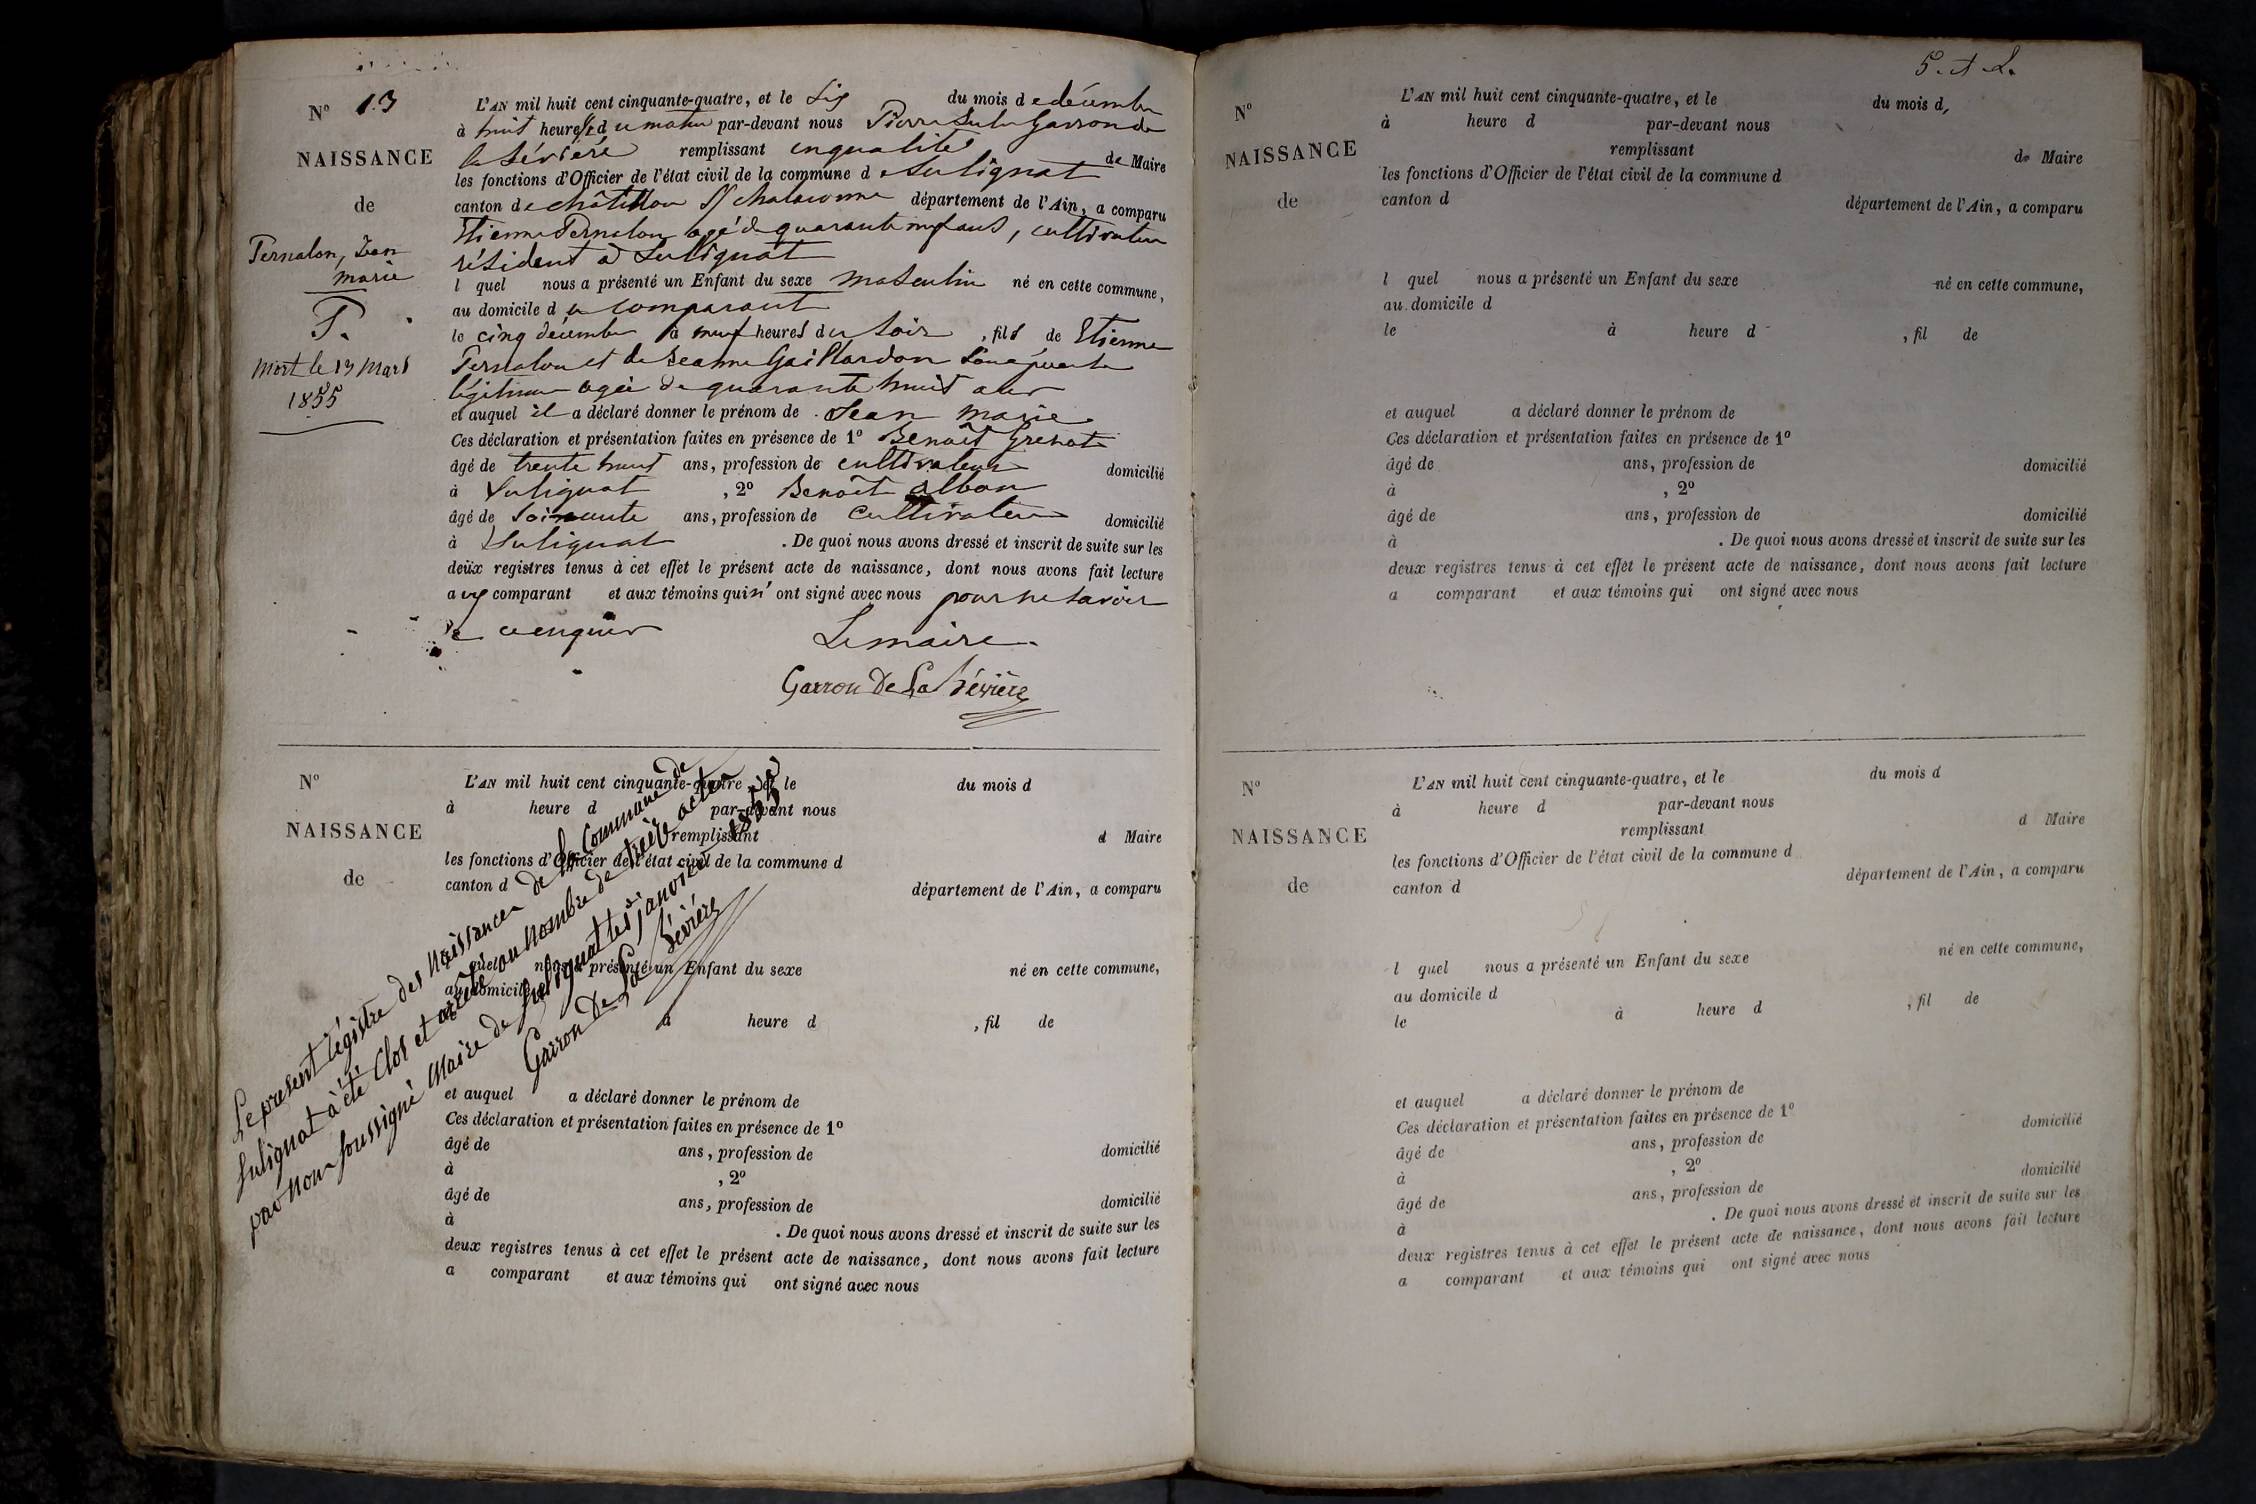 N° 13
NAISSANCE
de
Pernalon, Jean
marie
P.
Mort le 13 Mars
1855
L'AN mil huit cent cinquante-quatre, et le six du mois de décembre
à huit heures du matin par-devant nous Pierre Garron de
la Sévière remplissant en qualité de Maire
les fonctions d'Officier de l'état civil de la commune de Sulignat
canton de châtillon s/ chalaronne département de l'Ain, a comparu
Etienne Pernalon agé de quarante neuf ans, cultivateur
résident à Sulignat
l quel nous a présenté un Enfant du sexe masculin né en cette commune,
au domicile du comparant
le cinq décembre à neuf heures du soir, fils de Etienne
Pernalon et de Jeanne Gaillardon son épouse
légitime agée de quarante huit ans
et auquel il a déclaré donner le prénom de Jean marie
Ces déclaration et présentation faites en présence de 1° Benoît Grenot
âgé de trente huit ans, profession de cultivateur domicilié
à Sulignat, 2° Benoît albon
âgé de soixante ans, profession de cultivateur domicilié
à Sulignat. De quoi nous avons dressé et inscrit de suite sur les
deux registres tenus à cet effet le présent acte de naissance, dont nous avons fait lecture
aux comparant et aux témoins qui n' ont signé avec nous pour ne savoir
de ce enquis
Le maire
Garron De La Sévière
N°
NAISSANCE
de
L'AN mil huit cent cinquante-quatre, et le du mois d
à heure d par-devant nous
remplissant d Maire
les fonctions d'Officier de l'état civil de la commune d
canton d département de l'Ain, a comparu
quel nous a présenté un Enfant du sexe né en cette commune,
au domicile
à heure d , fil de
et auquel a déclaré donner le prénom de
Ces déclaration et présentation faites en présence de 1°
âgé de ans, profession de domicilié
à , 2°
âgé de ans, profession de domicilié
à . De quoi nous avons dressé et inscrit de suite sur les
deux registres tenus à cet effet le présent acte de naissance, dont nous avons fait lecture
a comparant et aux témoins qui ont signé avec nous
Le present régistre des Naissances de la Commune de
Sulignat à été Clos et arrêté au nombre de treize actes
par nous soussigné Maire de Sulignat le 1er janvier 1855
Garron De La Sévière
N°
NAISSANCE
de
L'AN mil huit cent cinquante-quatre, et le du mois d
à heure d par-devant nous
remplissant de Maire
les fonctions d'Officier de l'état civil de la commune d
canton d département de l'Ain, a comparu
l quel nous a présenté un Enfant du sexe né en cette commune,
au domicile d
le à heure d , fil de
et auquel a déclaré donner le prénom de
Ces déclaration et présentation faites en présence de 1°
âgé de ans, profession de domicilié
à , 2°
âgé de ans, profession de domicilié
à . De quoi nous avons dressé et inscrit de suite sur les
deux registres tenus à cet effet le présent acte de naissance, dont nous avons fait lecture
a comparant et aux témoins qui ont signé avec nous
N°
NAISSANCE
de
L'AN mil huit cent cinquante-quatre, et le du mois d
à heure d par-devant nous
remplissant d Maire
les fonctions d'Officier de l'état civil de la commune d
canton d département de l'Ain, a comparu
l quel nous a présenté un Enfant du sexe né en cette commune,
au domicile d
le à heure d , fil de
et auquel a déclaré donner le prénom de
Ces déclaration et présentation faites en présence de 1°
âgé de ans, profession de domicilié
à , 2°
âgé de ans, profession de domicilié
à . De quoi nous avons dressé et inscrit de suite sur les
deux registres tenus à cet effet le présent acte de naissance, dont nous avons fait lecture
a comparant et aux témoins qui ont signé avec nous